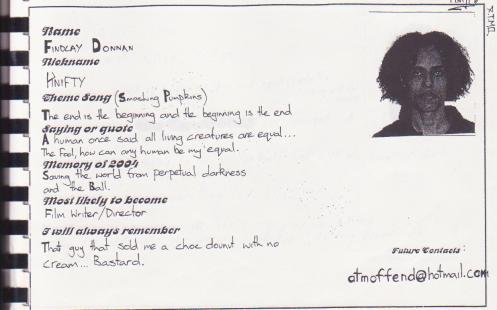 Name
FINDLAY DONNAN
Nickname
KNIFTY
Theme Song (Smashing Pumpkins)
The end is the beginning and the beginning is the end
Saying or quote
A human once said all living creatures are equal...
The Fool, how can any human be my equal.
Memory of 2004
Saving the world from perpetual darkness
and the Ball.
Most likely to become
Film Writer/Director
I will always remember
That guy that sold me a choc donut with no
cream... Bastard.
Future Contacts:
atmoffend@hotmail.com